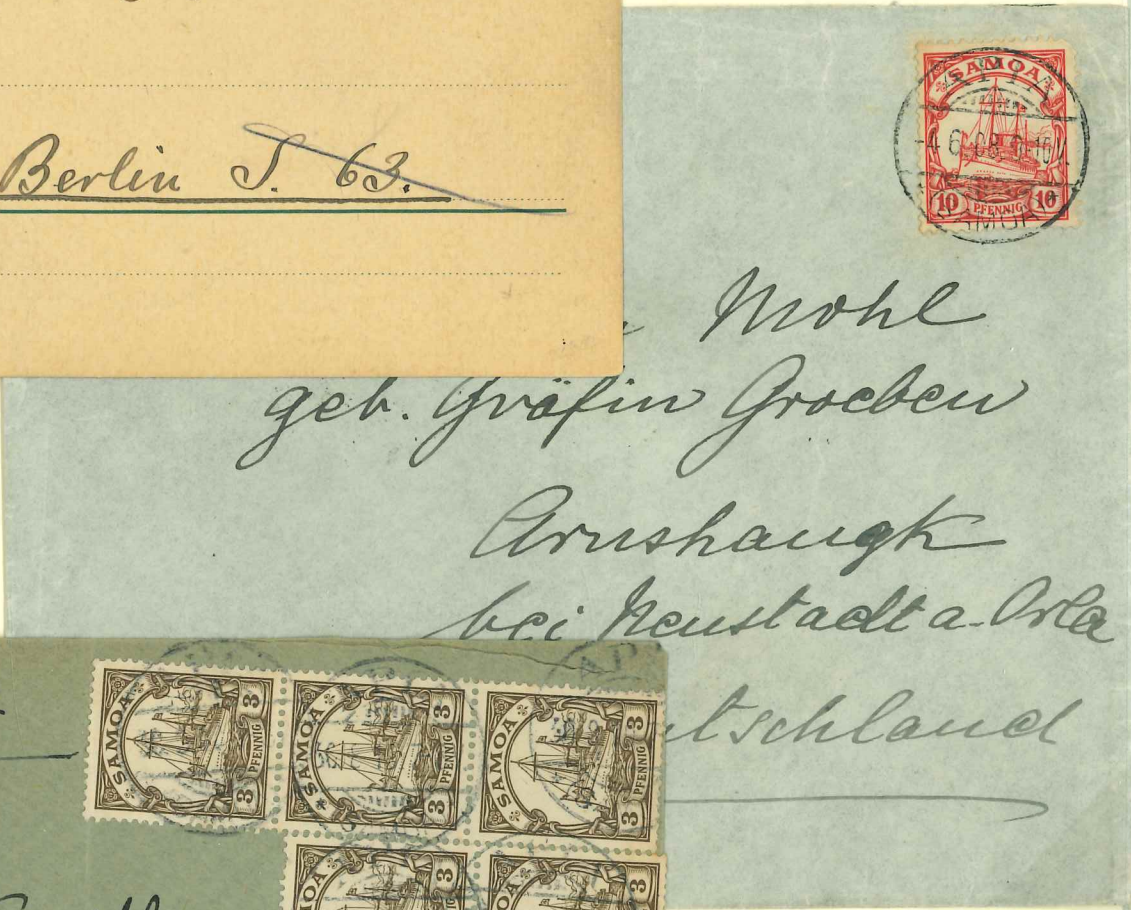 Berlin S. 63.
SAMOA
10 PFENNIG 10
APIA
-4 6 08
SAMOA
Mohl
geb. Gräfin Groeben
Arnshaugk
bei Neustadt a. Orla
tschland
SAMOA
3 PFENNIG 3
SAMOA
3 PFENNIG 3
SAMOA
3 PFENNIG 3
AP
MOA
3
MOA
3